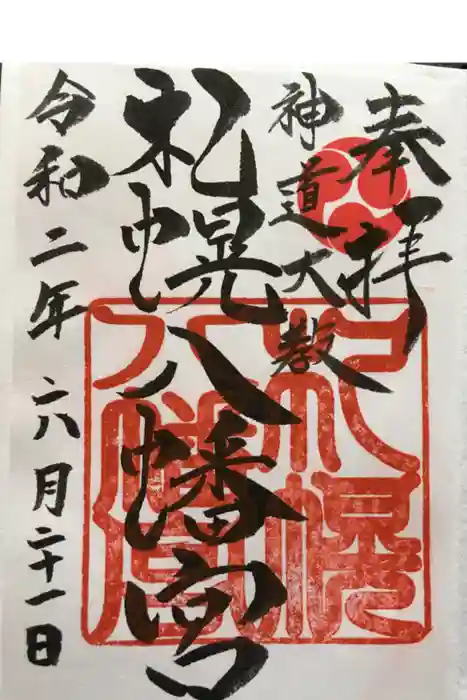 奉拝
神道大教
札幌八幡宮
令和二年六月二十一日
札幌
八幡宮